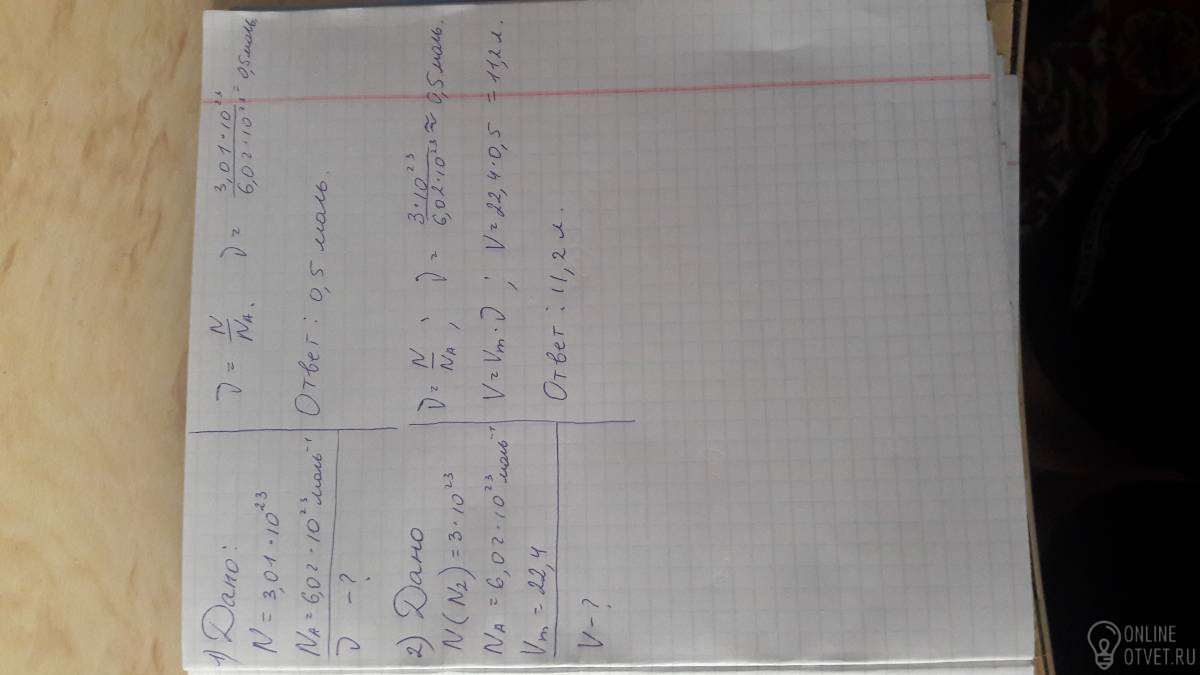 1) Дано:
N = 3,01·10²³
Nᴀ = 6,02·10²³ моль⁻¹
ν – ?
ν = N/Nᴀ. ν = 3,01·10²³/6,02·10²³ = 0,5 моль
Ответ: 0,5 моль.
2) Дано
N(N₂) = 3·10²³
Nᴀ = 6,02·10²³ моль⁻¹
Vm = 22,4
V – ?
ν = N/Nᴀ; ν = 3·10²³/6,02·10²³ ≈ 0,5 моль.
V = Vm·ν; V = 22,4·0,5 = 11,2 л.
Ответ: 11,2 л.
ONLINE
OTVET.RU